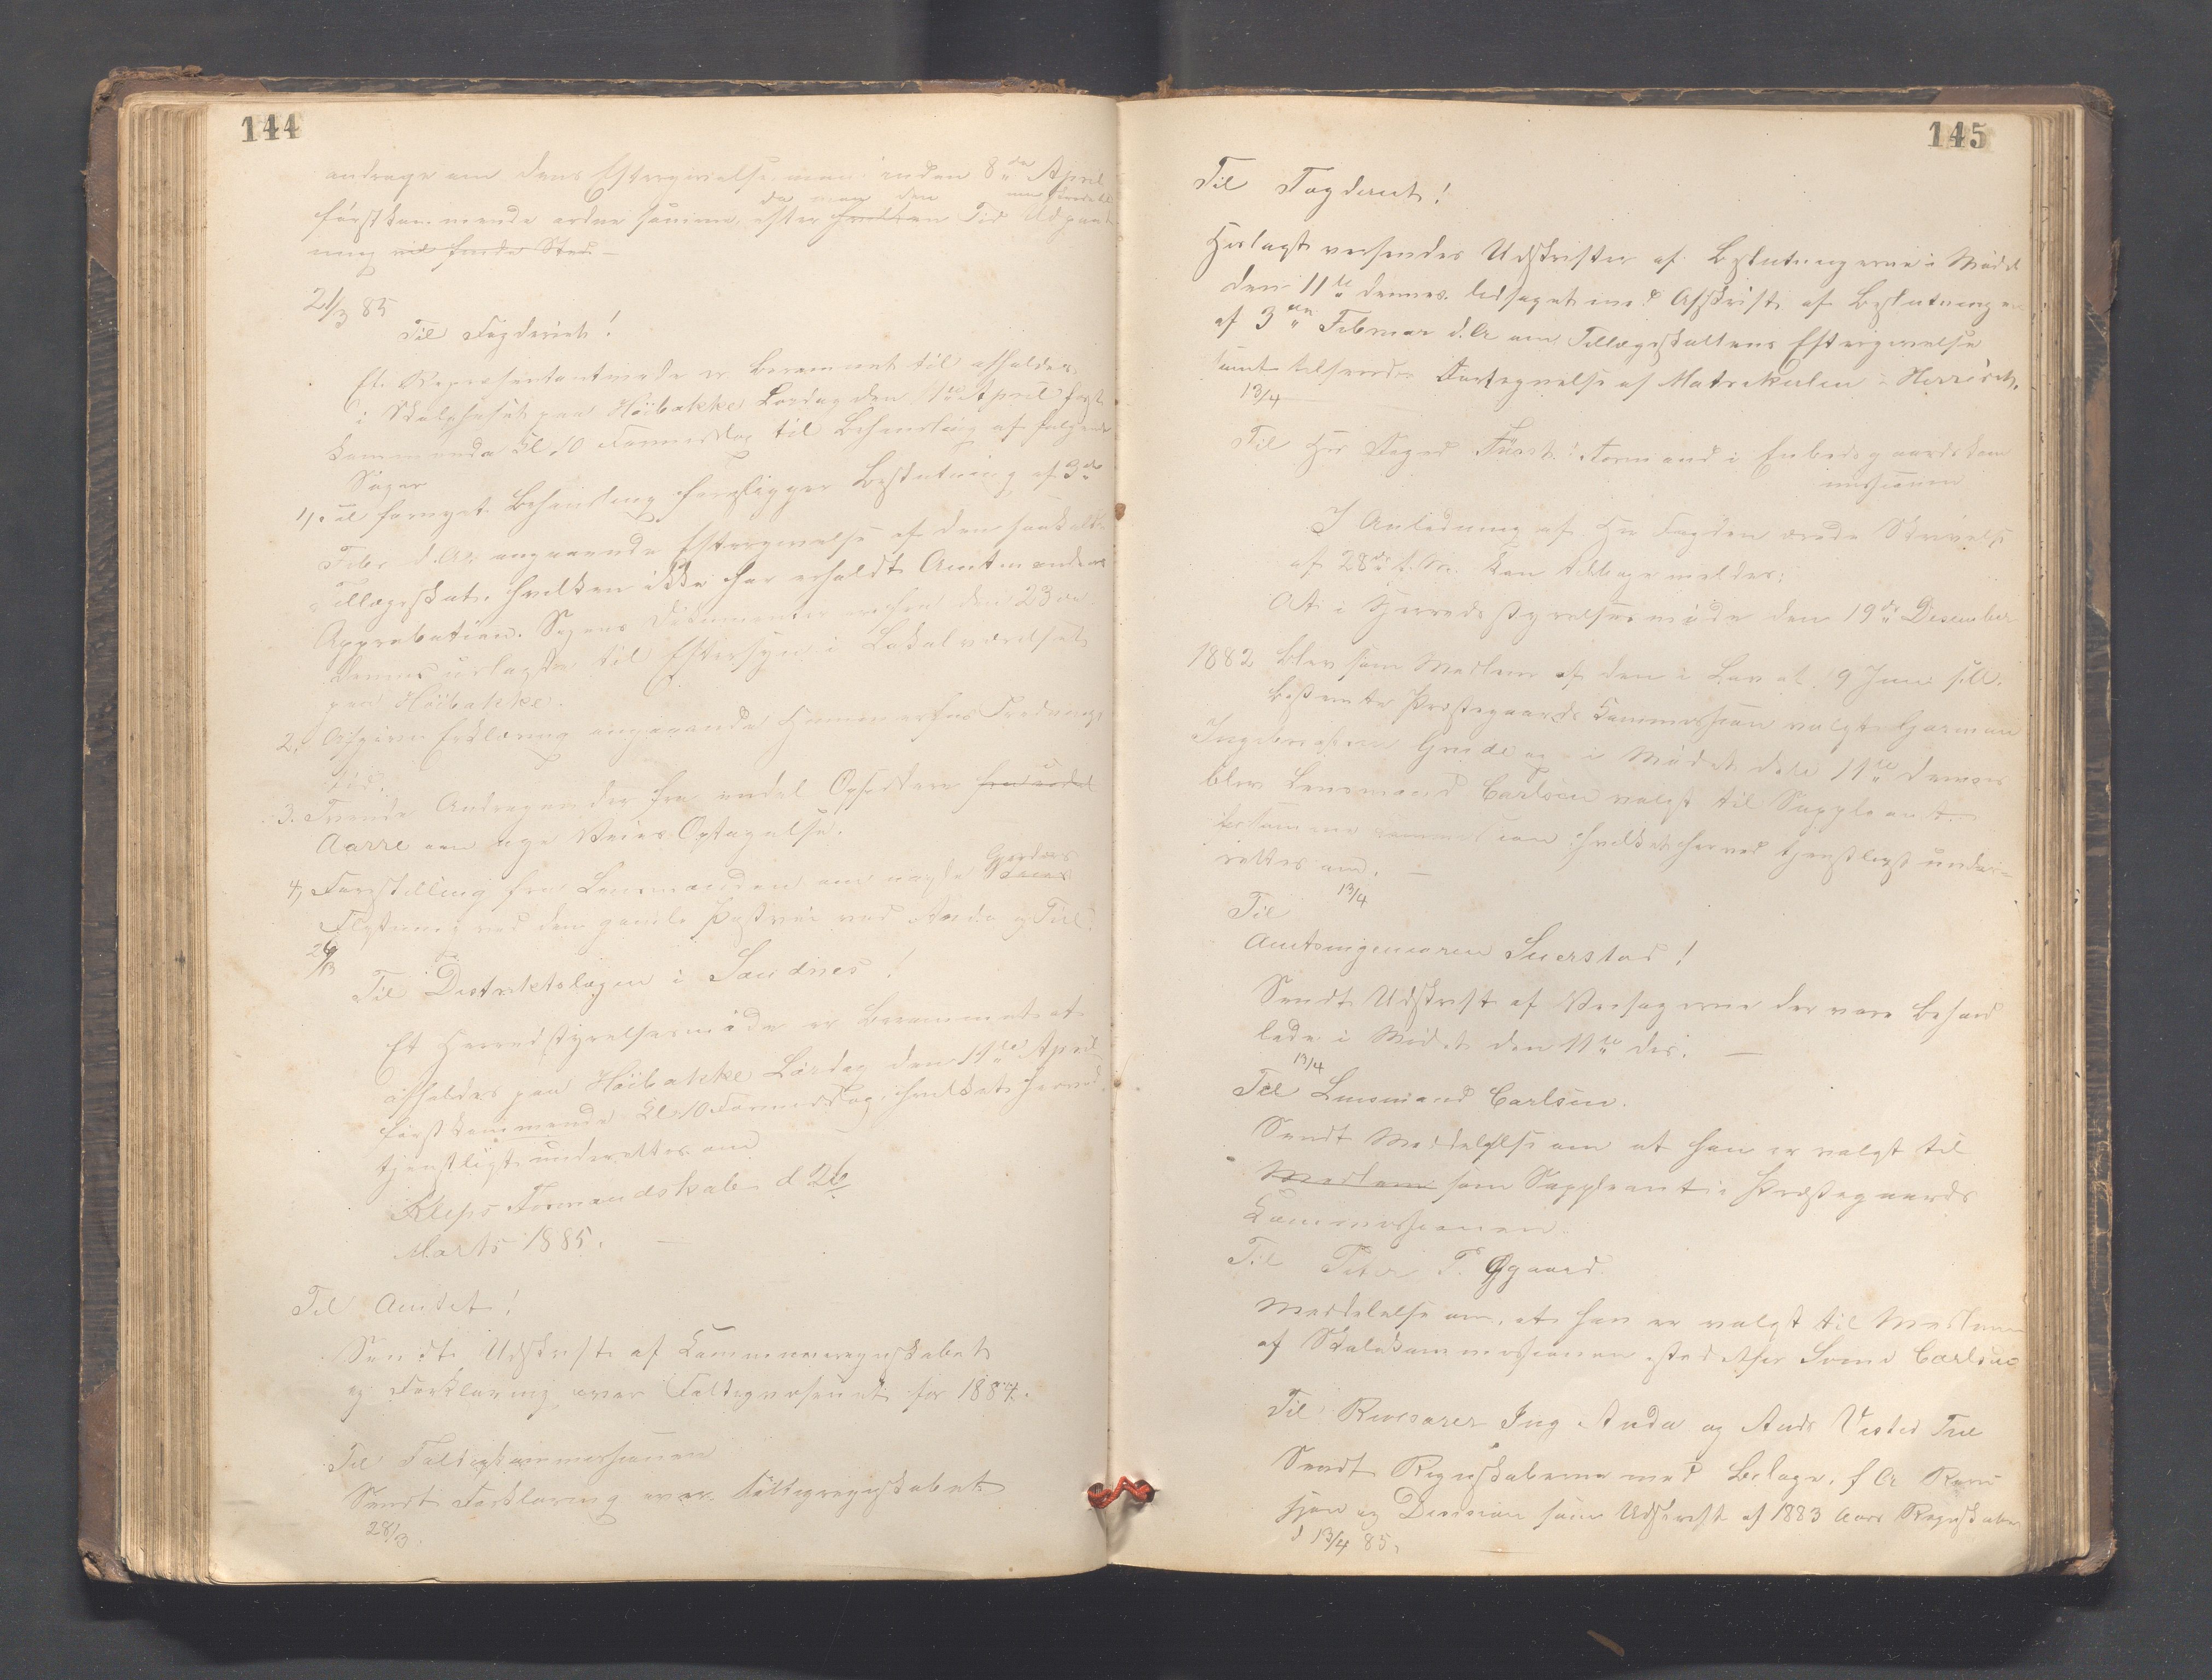 144
andrage om dens Eftergivelse, man inden 8de April
førstkommende ordne samme, efter hvilken Tid Udpant-
da man den
ning vil finde Sted –
21/3 85
Til Fogderiet!
Et Representantmøde er berammet til afholdes
i Skolehuset paa Höibakke Lørdag den 11te April først
kommende Kl 10 Formiddag til Behandling af følgende
Sager
1, Til fornyet Behandling foreligger Beslutning af 3de
Febr. d.A. angaaende Eftergivelse af den saakaldte
Tillægsskat, hvilken ikke har erholdt Amtmandens
Approbation. Sagens Dokumenter er den 23de
dennes udlagte til Eftersyn i Lokalværelset
paa Höibakke.
2, Afgive Erklæring angaaende Hummerens Frednings
tid.
3. Tvende Andragender fra endel Opsiddere
Aarre om nye Veies Optagelse.
4, Forestilling fra Lensmanden om nogle Gjerders
Flytning ved den gamle Postvei ved Anda og Tu
26/3
Til Distriktslægen i Sandnes!
Et Herredstyrelsesmöde er berammet at
afholdes paa Höibakke Lørdag den 11te April
førstkommende Kl 10 Formiddag, hvilket herved
tjenstligt underrettes om
Kleps Formandskab d 26
Marts 1885. –
Til Amtet!
Sendt Udskrift af Kommuneregnskabet
og Forklaring over Fattigvæsenet for 1884.
Til Fattigkommissionen
Sendt Forklaring over Fattigregnskabet
28/3.
145
Til Fogderiet!
Hoslagt versendes Udskrifter af Beslutningerne i Møde
den 11te dennes ledsaget med Afskrift af Beslutningen
af 3die Februar d.A om Tillægsskattens Eftergivelse
samt Fortegnelse af Matrekulen i Herredet.
13/4
Til Hr Foged Formand i Enbedsgaardskom
missionen
I Anledning af Hr Fogdens ærede Skrivelse
af 28de f.M. kan tilbagemeldes:
At i Herredsstyrelsesmøde den 19de Desember
1882 blev som Medlem af den i Lov at 9 Juni
bestemte Præstegaards Kommission valgt Garman
Ingebretsen Grude og i Mødet den 11te dennes
blev Lensmand Carlsen valgt til Suppleant
hvilket herved tjenstligst under-
rettes om. –
13/4
Til
Amtsingeniøren Suerstad!
Sendt Udskrift af Veisagerne der vare behand
lede i Mødet den 11te ds. –
13/4
Til Lensmand Carlsen.
Sendt Meddelelse om at han er valgt til
Medlem som Suppleant i Præstegaards
Kommissionen
Til Peter P. Øgaard
Meddelelse om, at han er valgt til Medlem
af Skolekommissionen istedetfor Svend Carlsen
Til Revisorer Ing Anda og Ands Vested Tu
Sendt Regnskaberne med Bilage, f A Revi
sjon og Desision som Udskrift af 1883 Aars Regnskaber
d 13/4 85.